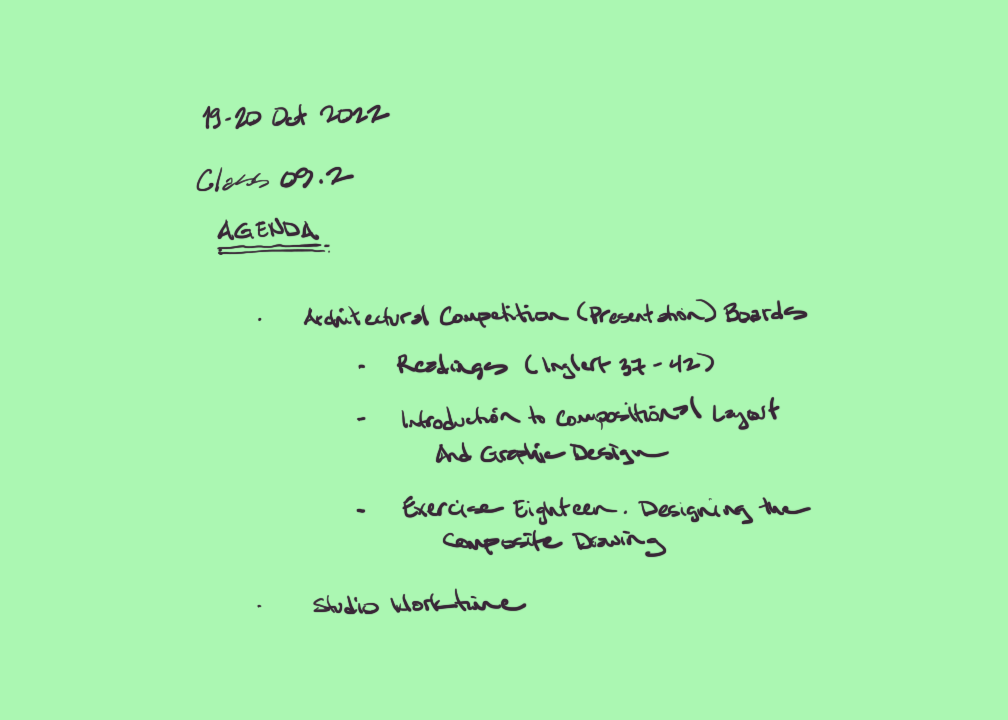 19-20 Oct 2022
Class 09.2
AGENDA
· Architectural Competition (Presentation) Boards
- Readings (Inglert 37-42)
- Introduction to Compositional Layout
And Graphic Design
- Exercise Eighteen. Designing the
Composite Drawing
· Studio Worktime